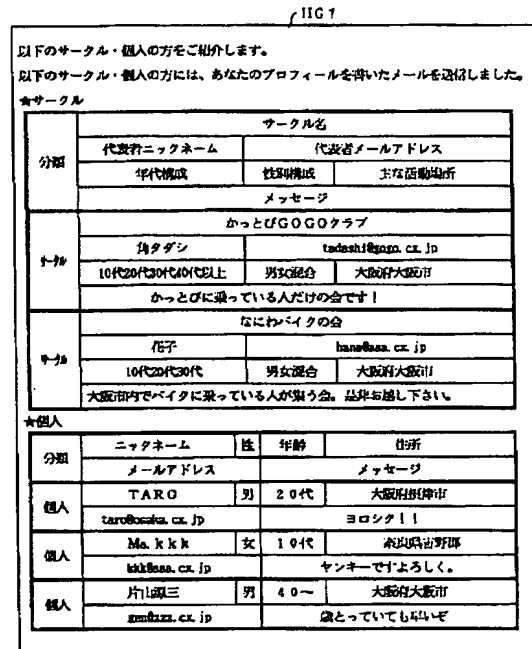 IIG7
以下のサークル・個人の方をご紹介します。
以下のサークル・個人の方には、あなたのプロフィールを書いたメールを送信しました。
★サークル
分類
サークル名
代表者ニックネーム 代表者メールアドレス
年代構成 性別構成 主な活動場所
メッセージ
サークル
かっとびGOGOクラブ
角タダシ tadashi@gogo.cx.jp
10代20代30代40代以上 男女混合 大阪府大阪市
かっとびに乗っている人だけの会です!
サークル
なにわバイクの会
花子 hana@aaa.cx.jp
10代20代30代 男女混合 大阪府大阪市
大阪市内でバイクに乗っている人が集う会。是非お越し下さい。
★個人
分類
ニックネーム 性 年齢 住所
メールアドレス メッセージ
個人
TARO 男 20代 大阪府摂津市
taro@osaka.cx.jp ヨロシク!!
個人
Ma.kkk 女 10代 奈良県吉野郡
kkk@aaa.cx.jp ヤンキーですよろしく。
個人
片山源三 男 40~ 大阪府大阪市
gen@zzz.cx.jp 歳とっていても早いぞ